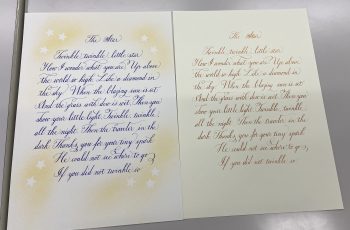 The Star
Twinkle, twinkle, little star
How I wonder what you are. Up above
the world so high. Like a diamond in
the sky. When the blazing sun is set
And the grass with dew is wet. Then you
show your little light. Twinkle, twinkle,
all the night. Then the traveler in the
dark Thanks you for your tiny spark
He could not see where to go
If you did not twinkle so
The Star
Twinkle, twinkle, little star
How I wonder what you are. Up above
the world so high. Like a diamond in
the sky. When the blazing sun is set
And the grass with dew is wet. Then you
show your little light. Twinkle, twinkle,
all the night. Then the traveler in the
dark Thanks you for your tiny spark
He could not see where to go
If you did not twinkle so